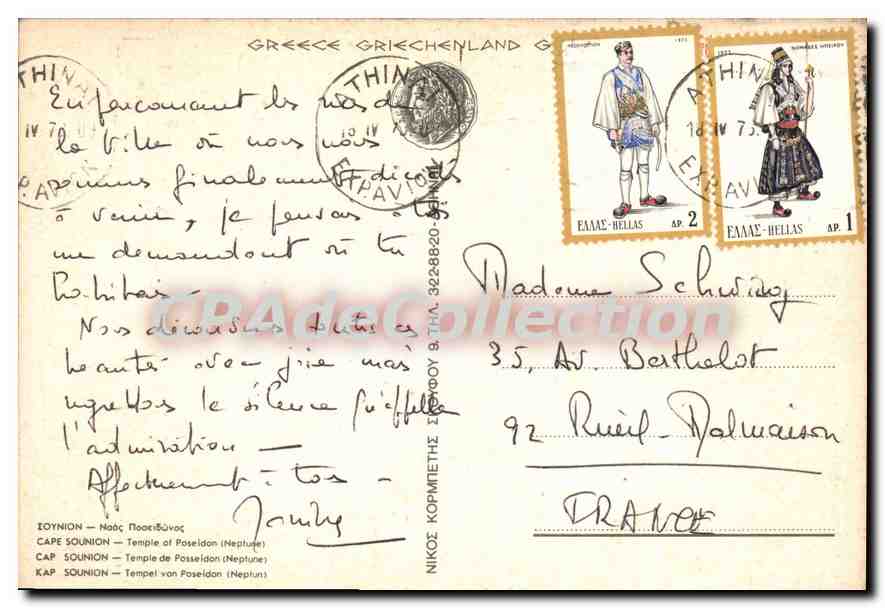 GREECE GRIECHENLAND G
ΑΕΣΚΟΥΡΙΟΝ 1972
1972
ATHINAI
18 IV 73
EXP. AVION
ΕΛΛΑΣ-HELLAS ΔΡ. 2
ΕΛΛΑΣ-HELLAS ΔΡ. 1
En parcourant les
la ville où nous nous
sommes finalement
à venir, je pensais
me demandant où tu
habitais -
Nous découvrons toutes ces
beautés avec joie mais
regrettons le silence
l'admiration —
Affectueusement à tous -
Madame Schwing
35, Av. Berthelot
92 Rueil-Malmaison
FRANCE
ΝΙΚΟΣ ΚΟΡΜΠΕΤΗΣ ΣΙΣΥΦΟΥ 9. ΤΗΛ. 322-88-20-ΑΘΗΝΑΙ
CPAdeCollection
ΣΟΥΝΙΟΝ — Ναὸς Ποσειδῶνος
CAPE SOUNION — Temple of Poseidon (Neptune)
CAP SOUNION — Temple de Posseidon (Neptune)
KAP SOUNION — Tempel von Poseidon (Neptun)